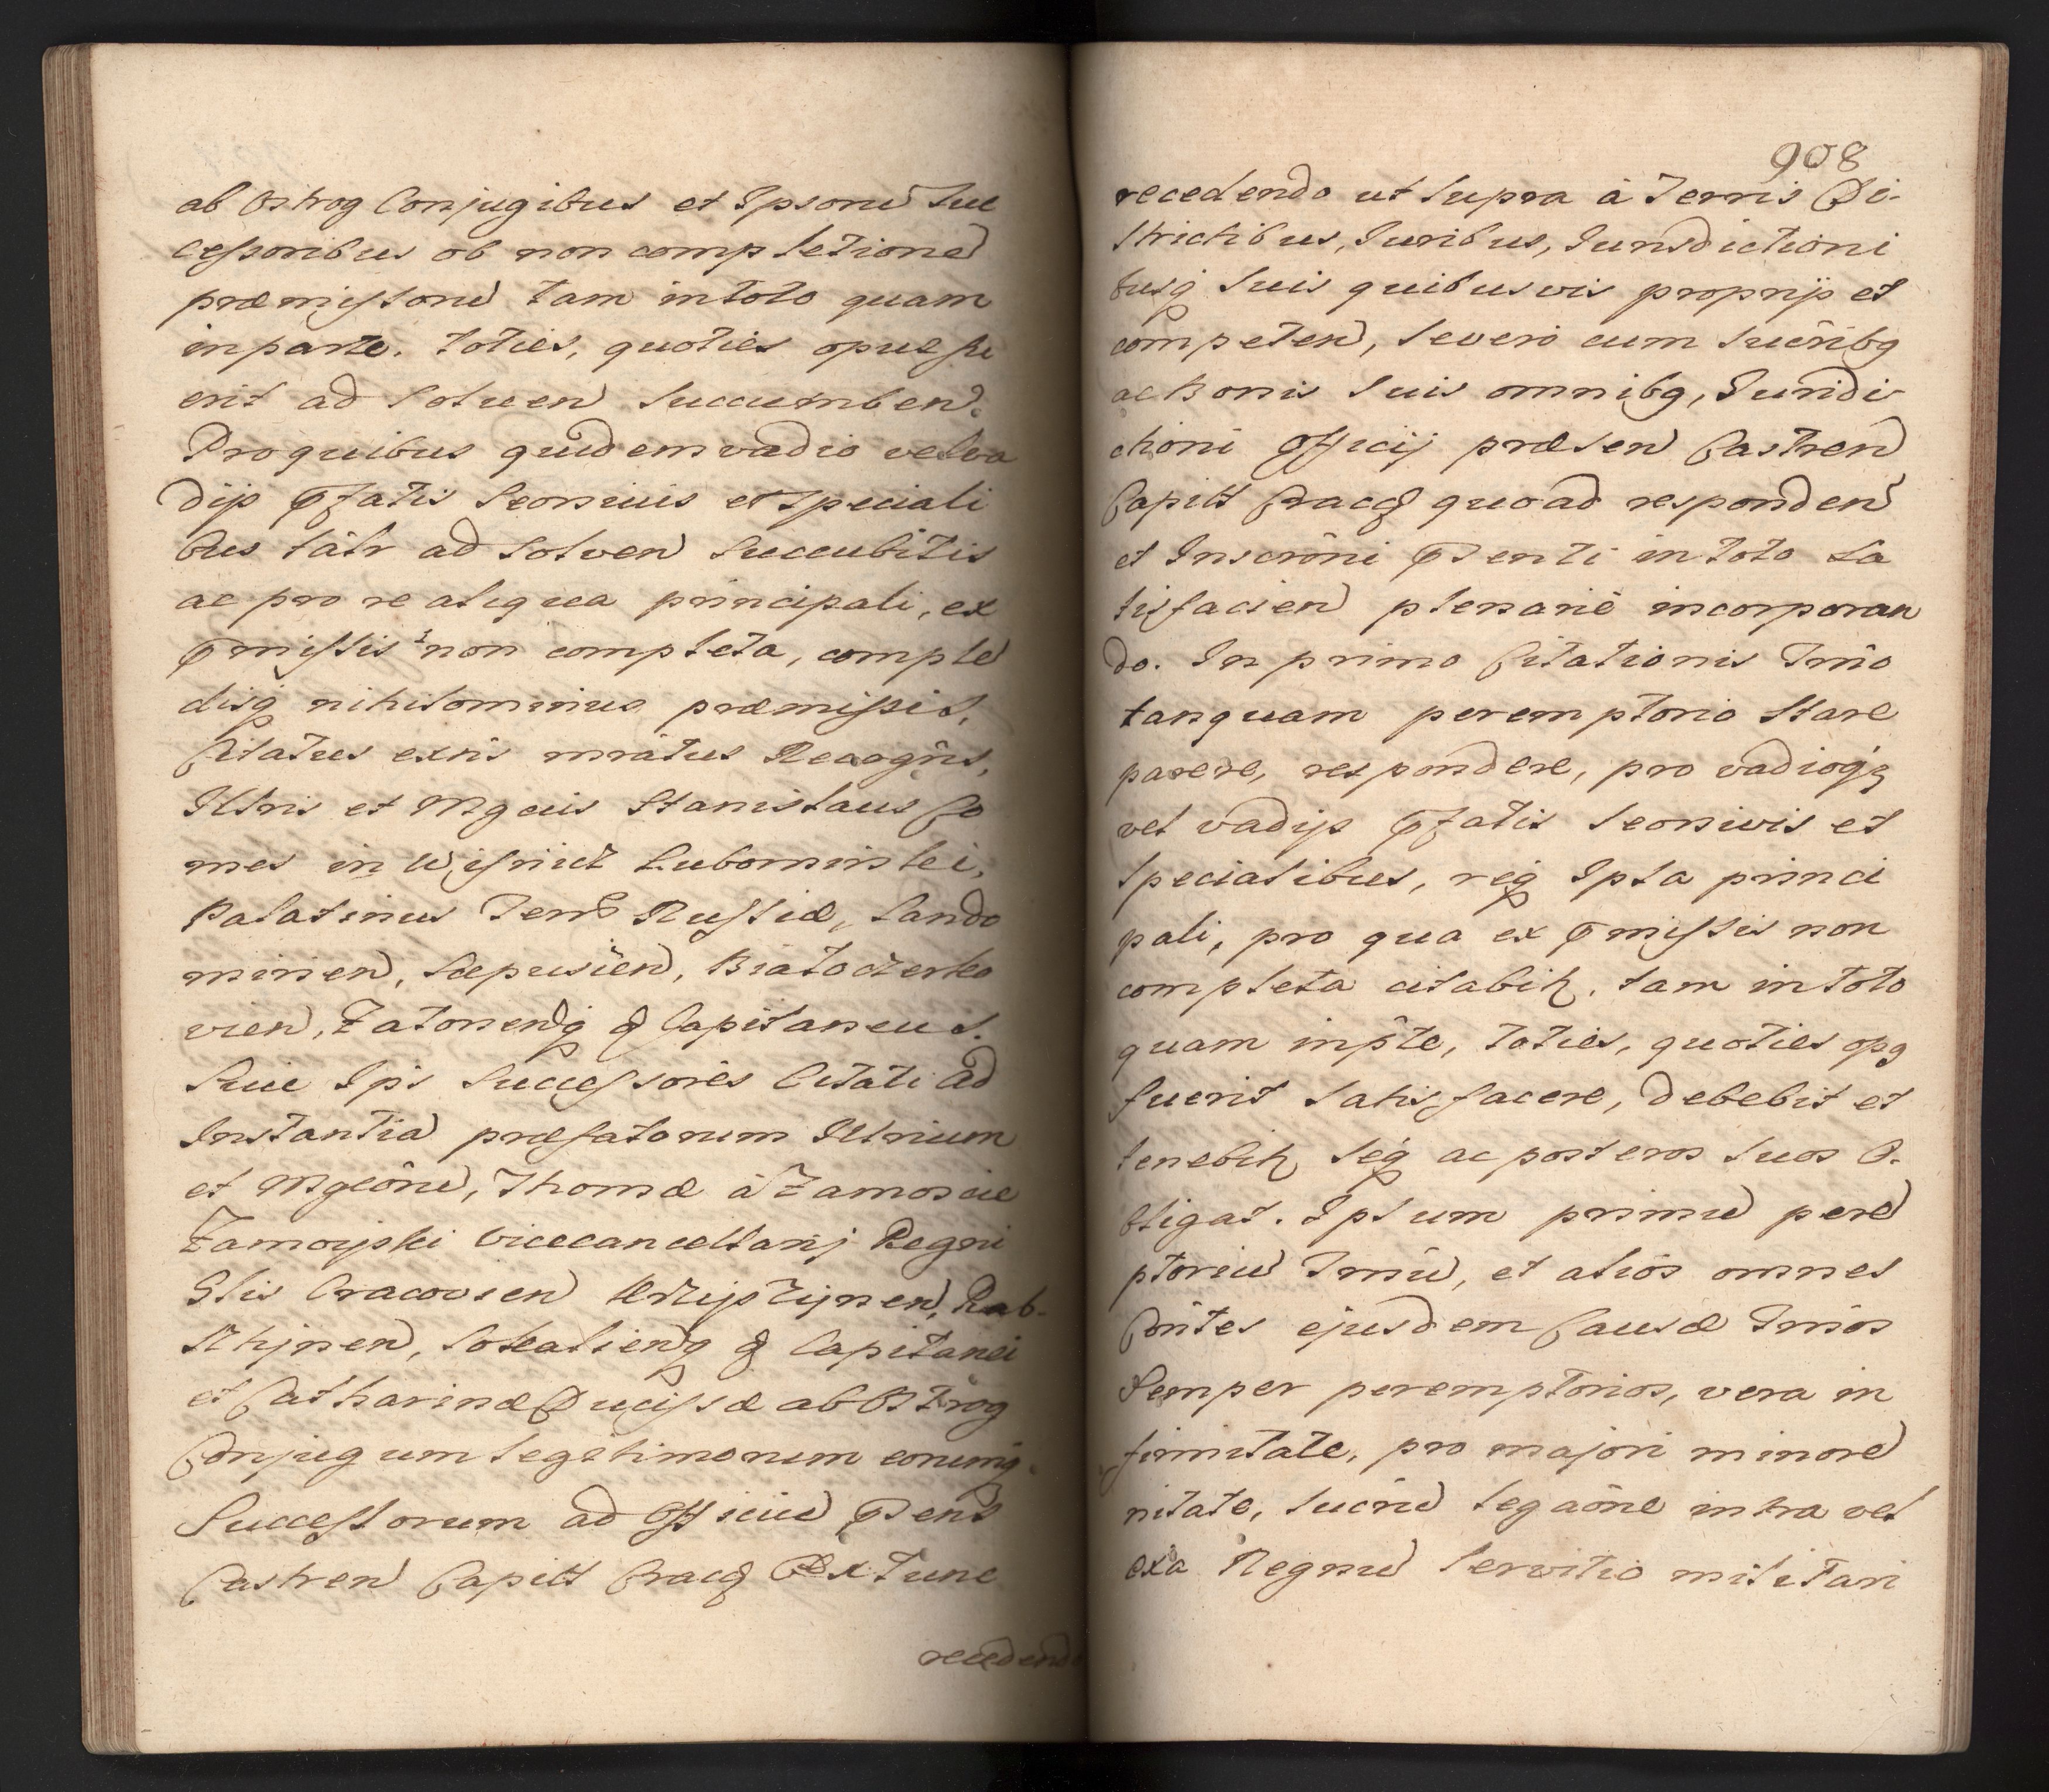 ab Ostrog Conjugibus et Ipsoru Suc
cessoribus ob non completione
præmissoru tam in toto quam
in parte. toties, quoties opus fu
erit ad solven succumben.
Pro quibus quidem vadio vel va
dijs pfatis seorsivis et speciali
bus talr ad solven succubitis
ac pro re aliqua principali, ex
pmissis non completa, comple
tisq nihilominus præmissis,
Citatus exñs mratus Recogñs,
Illris et Mgcus Stanislaus Co
mes in Wisnicz Lubomirski,
Palatinus Terr Russiæ, Sando
mirien, Scepusien, Białocerko
vien, Zatorienq & Capitaneus.
Sive Ipš Successores Citati ad
Instantia præfatorum Illrium
et Mgcôru, Thomæ à Zamoscie
Zamoyski Vicecancellarij Regni
Glis Cracovien Krzyszynen, Rab-
sthynen, Sokalienq & Capitanei
et Catharinæ Ducissæ ab Ostrog
Conjugum legitimorum eorumq
Successorum ad Officiu psens
Castren Capitt Crac& Extunc
recedendo
908
recedendo ut supra à Terris Di-
strictibus, Juribus, Jurisdictioni
busq suis quibusvis proprijs et
competen, severo cum sucribq
ac Bonis suis omnibq, Juridi-
ctioni Officij præsen Castren
Capitt Crac& quoad responden
et Inscrôni psenti in toto sa
tisfacien plenariè incorporan
do. In primo Citationis Tmîo
tanquam peremptorio stare
parere, respondere, pro vadioq
vel vadijs pfatis seorsivis et
specialibus, req Ipsa princi
pali, pro qua ex pmissis non
completa citabitr. tam in toto
quam in pte, toties, quoties opq
fuerit satisfacere, debebit et
tenebitr seq ac posteros suos o-
bligat. Ipsum primu pere
ptoriu Tmîu, et aliôs omnes
Côntes ejusdem Causæ Tmîos
semper peremptorios, vera in
firmitate, pro majori minore
nitate, sucrû legaône intra vel
exa Regnu servitio militari